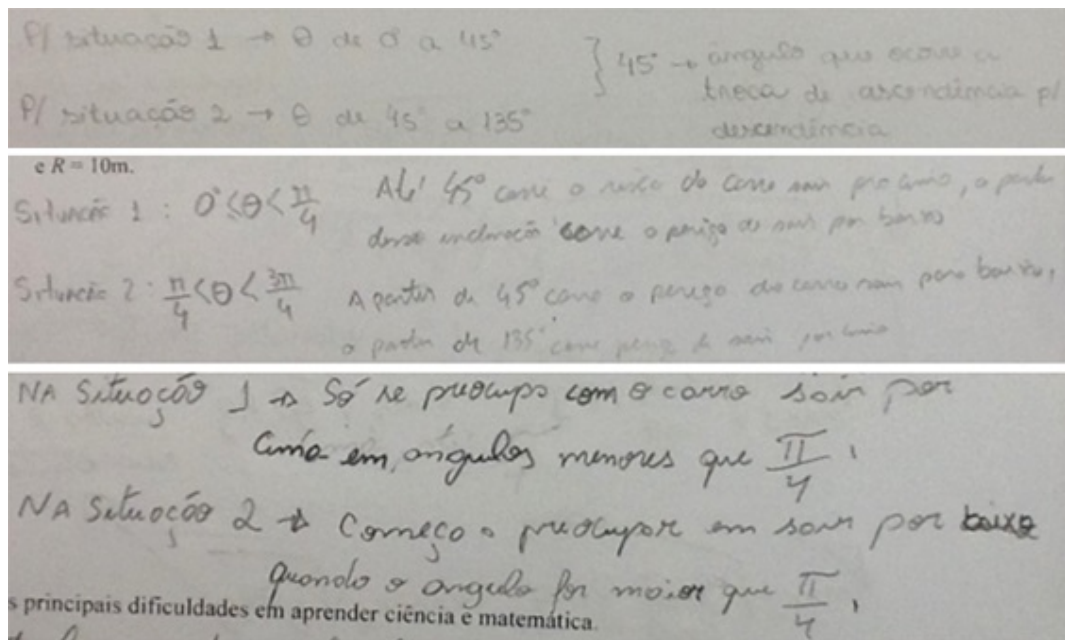 P/ situação 1 → θ de 0° a 45°
P/ situação 2 → θ de 45° a 135°
} 45° → ângulo que ocorre a
troca de ascendência p/
descendência
e R = 10m.
Situação 1 : 0° ≤ θ < π/4
Até 45° corre o risco do carro sair por cima, a partir
dessa inclinação corre o perigo de sair por baixo
Situação 2 : π/4 < θ < 3π/4
A partir de 45° corre o perigo do carro sair para baixo,
a partir de 135° corre perigo de sair por cima
NA Situação 1 → Só se preocupa com o carro sair por
cima em ângulos menores que π/4 ,
NA Situação 2 → Começo a preocupar em sair por baixo
quando o angulo for maior que π/4 ,
s principais dificuldades em aprender ciência e matemática.